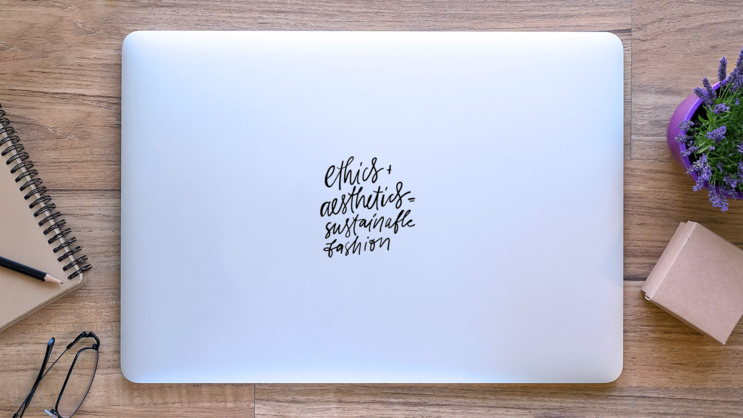 ethics +
aesthetics =
sustainable
fashion